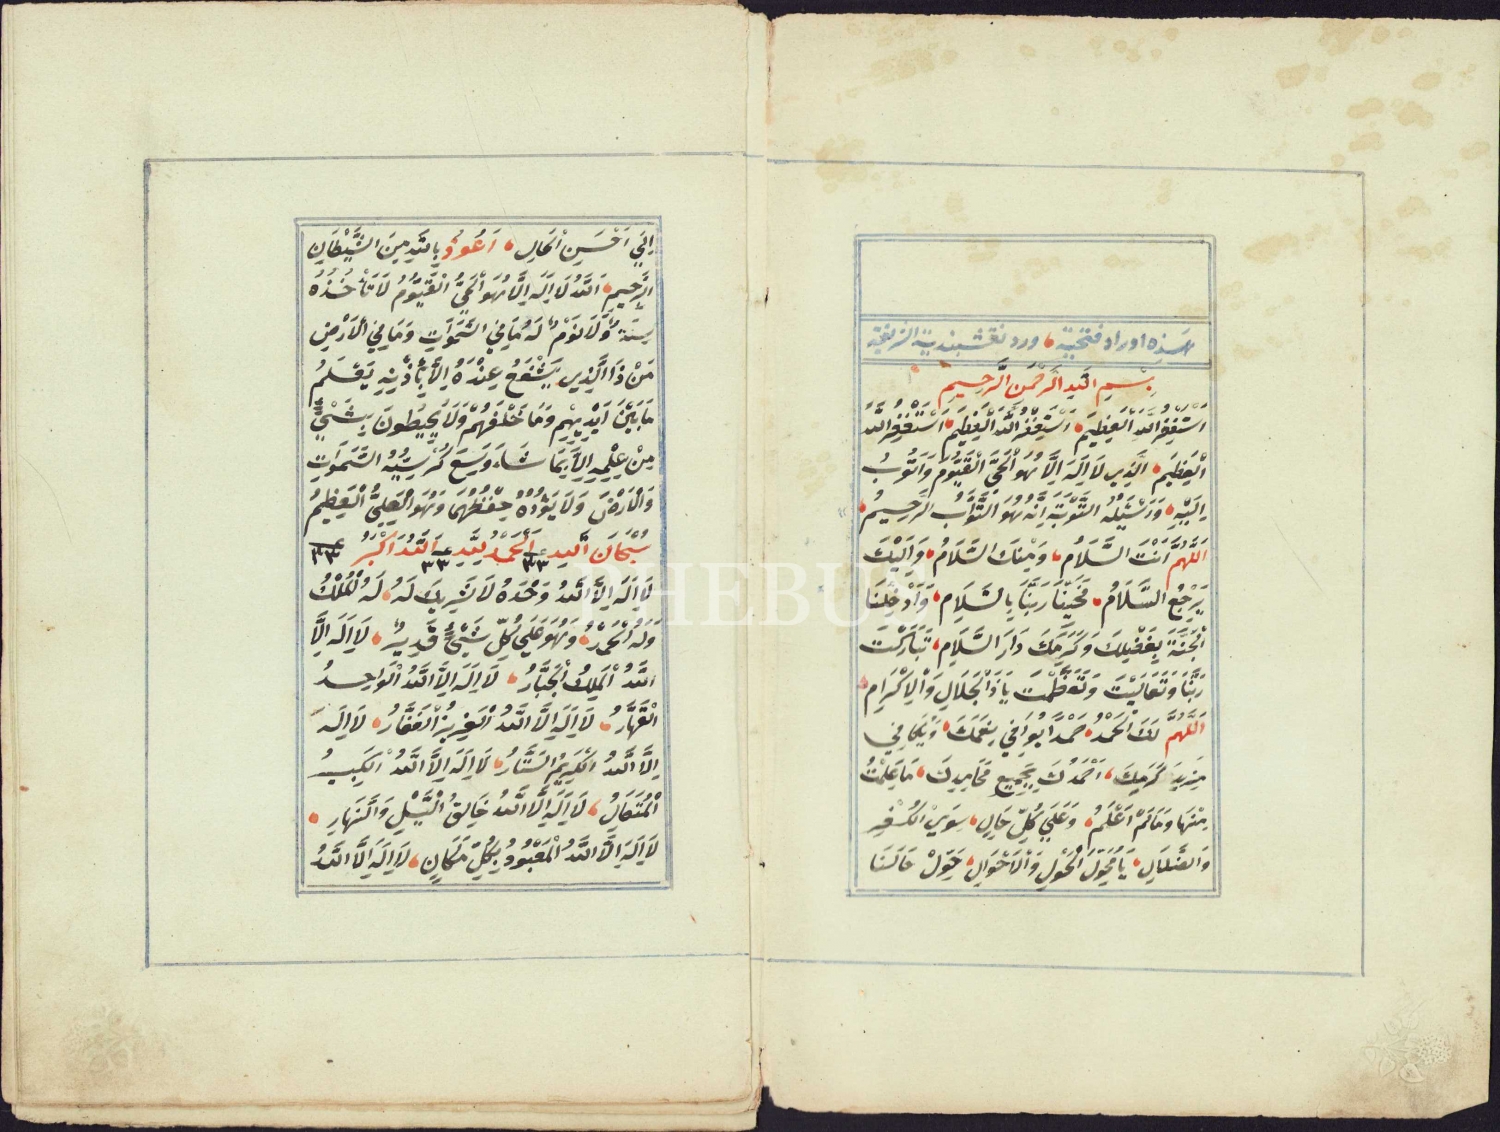 هذه اوراد فتحية ورد نقشبندية الشريفة
بِسْمِ اللهِ الرَّحْمٰنِ الرَّحِيمِ
اَسْتَغْفِرُ اللهَ الْعَظِيمَ اَسْتَغْفِرُ اللهَ الْعَظِيمَ اَسْتَغْفِرُ اللهَ
الْعَظِيمَ الَّذِي لَا اِلَهَ اِلَّا هُوَ الْحَيُّ الْقَيُّومُ وَاَتُوبُ
اِلَيْهِ وَاَسْئَلُهُ التَّوْبَةَ اِنَّهُ هُوَ التَّوَّابُ الرَّحِيمُ
اَللّٰهُمَّ اَنْتَ السَّلَامُ وَمِنْكَ السَّلَامُ وَاِلَيْكَ
يَرْجِعُ السَّلَامُ فَحَيِّنَا رَبَّنَا بِالسَّلَامِ وَاَدْخِلْنَا
الْجَنَّةَ بِفَضْلِكَ وَكَرَمِكَ دَارَ السَّلَامِ تَبَارَكْتَ
رَبَّنَا وَتَعَالَيْتَ وَتَعَظَّمْتَ يَا ذَا الْجَلَالِ وَالْاِكْرَامِ
اَللّٰهُمَّ لَكَ الْحَمْدُ حَمْدًا يُوَافِي نِعَمَكَ وَيُكَافِي
مَزِيدَ كَرَمِكَ اَحْمَدُكَ بِجَمِيعِ مَحَامِدِكَ مَا عَلِمْتُ
مِنْهَا وَمَا لَمْ اَعْلَمُ وَعَلَى كُلِّ حَالٍ سِوَى الْكُفْرِ
وَالضَّلَالِ يَا مُحَوِّلَ الْحَوْلِ وَالْاَحْوَالِ حَوِّلْ حَالَنَا
اِلَى اَحْسَنِ الْحَالِ اَعُوذُ بِاللهِ مِنَ الشَّيْطَانِ
الرَّجِيمِ اَللهُ لَا اِلَهَ اِلَّا هُوَ الْحَيُّ الْقَيُّومُ لَا تَأْخُذُهُ
سِنَةٌ وَلَا نَوْمٌ لَهُ مَا فِي السَّمٰوَاتِ وَمَا فِي الْاَرْضِ
مَنْ ذَا الَّذِي يَشْفَعُ عِنْدَهُ اِلَّا بِاِذْنِهِ يَعْلَمُ
مَا بَيْنَ اَيْدِيهِمْ وَمَا خَلْفَهُمْ وَلَا يُحِيطُونَ بِشَيْءٍ
مِنْ عِلْمِهِ اِلَّا بِمَا شَاءَ وَسِعَ كُرْسِيُّهُ السَّمٰوَاتِ
وَالْاَرْضَ وَلَا يَؤُدُهُ حِفْظُهُمَا وَهُوَ الْعَلِيُّ الْعَظِيمُ
سُبْحَانَ اللهِ ٣٣ اَلْحَمْدُ لِلّٰهِ ٣٣ اَللهُ اَكْبَرُ ٣٣
لَا اِلَهَ اِلَّا اللهُ وَحْدَهُ لَا شَرِيكَ لَهُ لَهُ الْمُلْكُ
وَلَهُ الْحَمْدُ وَهُوَ عَلَى كُلِّ شَيْءٍ قَدِيرٌ لَا اِلَهَ اِلَّا
اللهُ الْمَلِكُ الْجَبَّارُ لَا اِلَهَ اِلَّا اللهُ الْوَاحِدُ
الْقَهَّارُ لَا اِلَهَ اِلَّا اللهُ الْعَزِيزُ الْغَفَّارُ لَا اِلَهَ
اِلَّا اللهُ الْكَرِيمُ السَّتَّارُ لَا اِلَهَ اِلَّا اللهُ الْكَبِيرُ
الْمُتَعَالُ لَا اِلَهَ اِلَّا اللهُ خَالِقُ الَّيْلِ وَالنَّهَارِ
لَا اِلَهَ اِلَّا اللهُ الْمَعْبُودُ بِكُلِّ مَكَانٍ لَا اِلَهَ اِلَّا اللهُ
PHEBUS